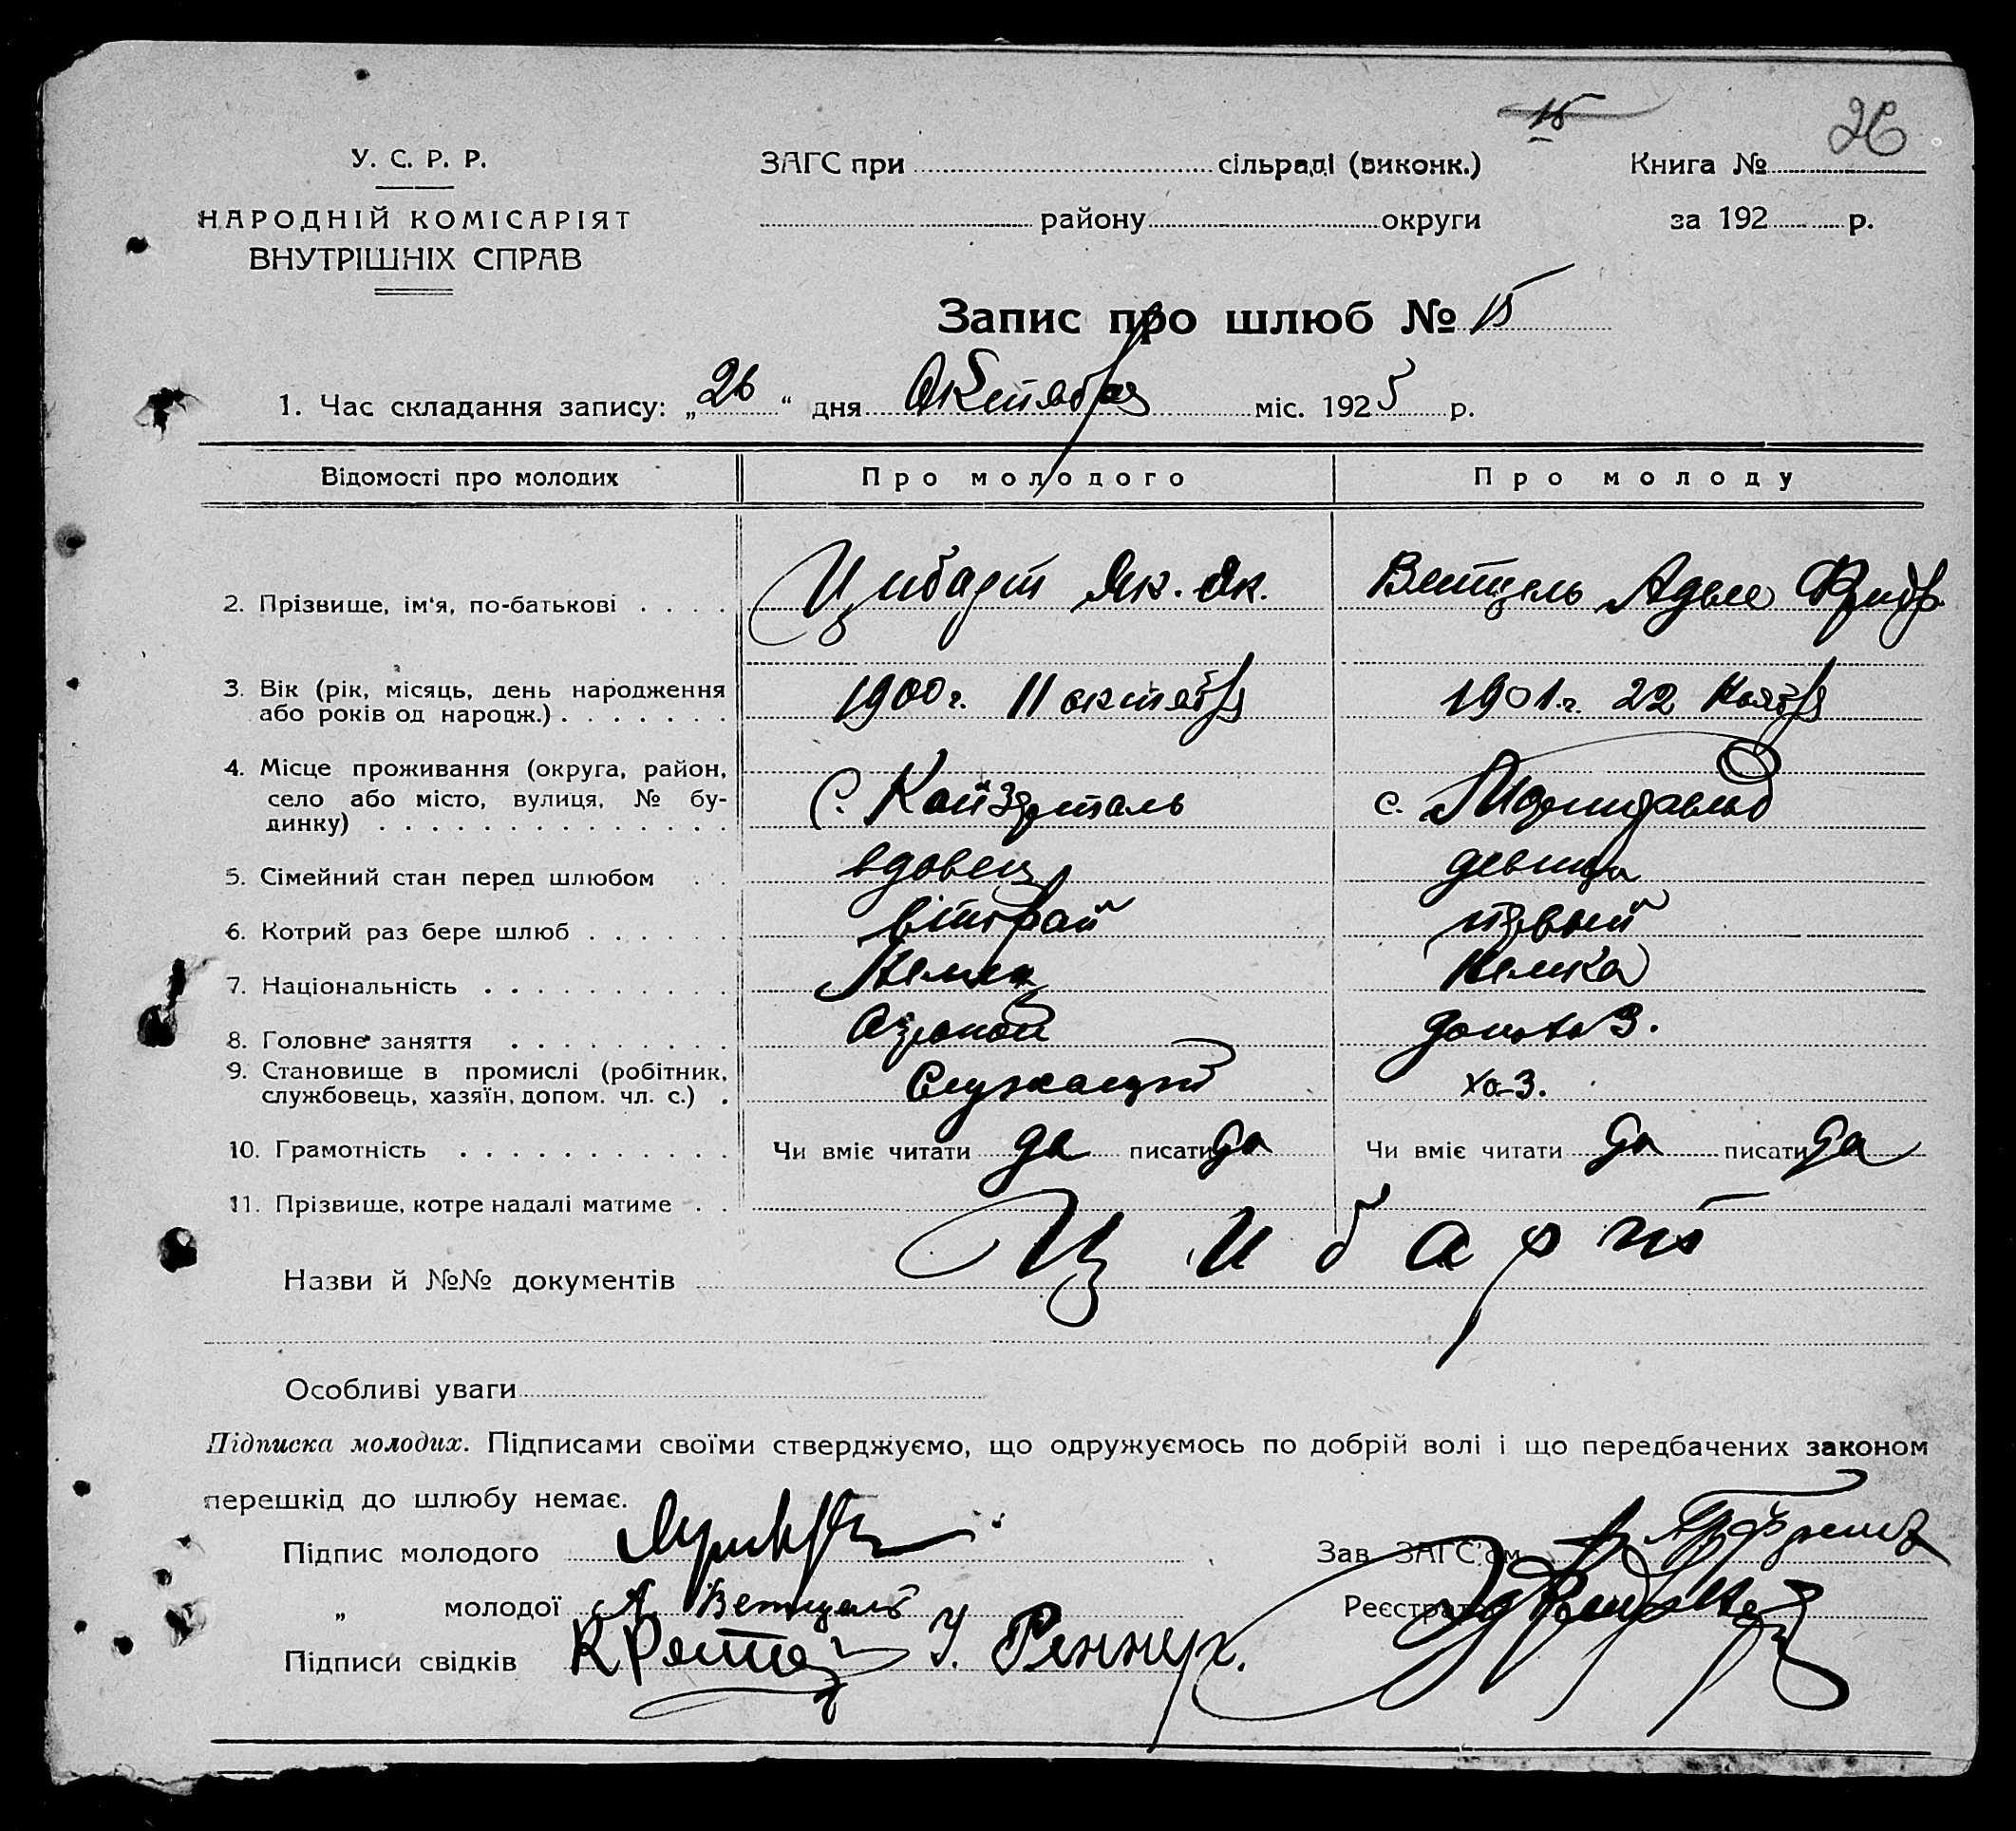 15
26
У. С. Р. Р.
НАРОДНІЙ КОМІСАРІЯТ
ВНУТРІШНІХ СПРАВ
ЗАГС при сільраді (виконк.)
Книга №
району округи
за 192 р.
Запис про шлюб № 15
1. Час складання запису: „26“ дня Октября міс. 1925 р.
Відомості про молодих Про молодого Про молоду
2. Прізвище, ім'я, по-батькові . . . . Цибарт Як. Як. Ветцель Адель Фридр.
3. Вік (рік, місяць, день народження
або років од народж.) . . . . . . . 1900 г. 11 октябр 1901 г. 22 Ноябр
4. Місце проживання (округа, район,
село або місто, вулиця, № бу-
динку) . . . . . . . . . . . . . . с. Кайзерталь с.
5. Сімейний стан перед шлюбом . . вдовец девица
6. Котрий раз бере шлюб . . . . . . второй первый
7. Національність . . . . . . . . . . Немец Немка
8. Головне заняття . . . . . . . . . Агроном
9. Становище в промислі (робітник,
службовець, хазяїн, допом. чл. с.) . Служащий хо-з.
10. Грамотність . . . . . . . . . . . Чи вміє читати да писати да Чи вміє читати да писати да
11. Прізвище, котре надалі матиме . . Цибарт
Назви й №№ документів
Особливі уваги
Підписка молодих. Підписами своїми стверджуємо, що одружуємось по добрій волі і що передбачених законом
перешкід до шлюбу немає.
Підпис молодого
Зав. ЗАГС'ом
„ молодої А Ветцель
Реєстратор
Підписи свідків У. Реннер.